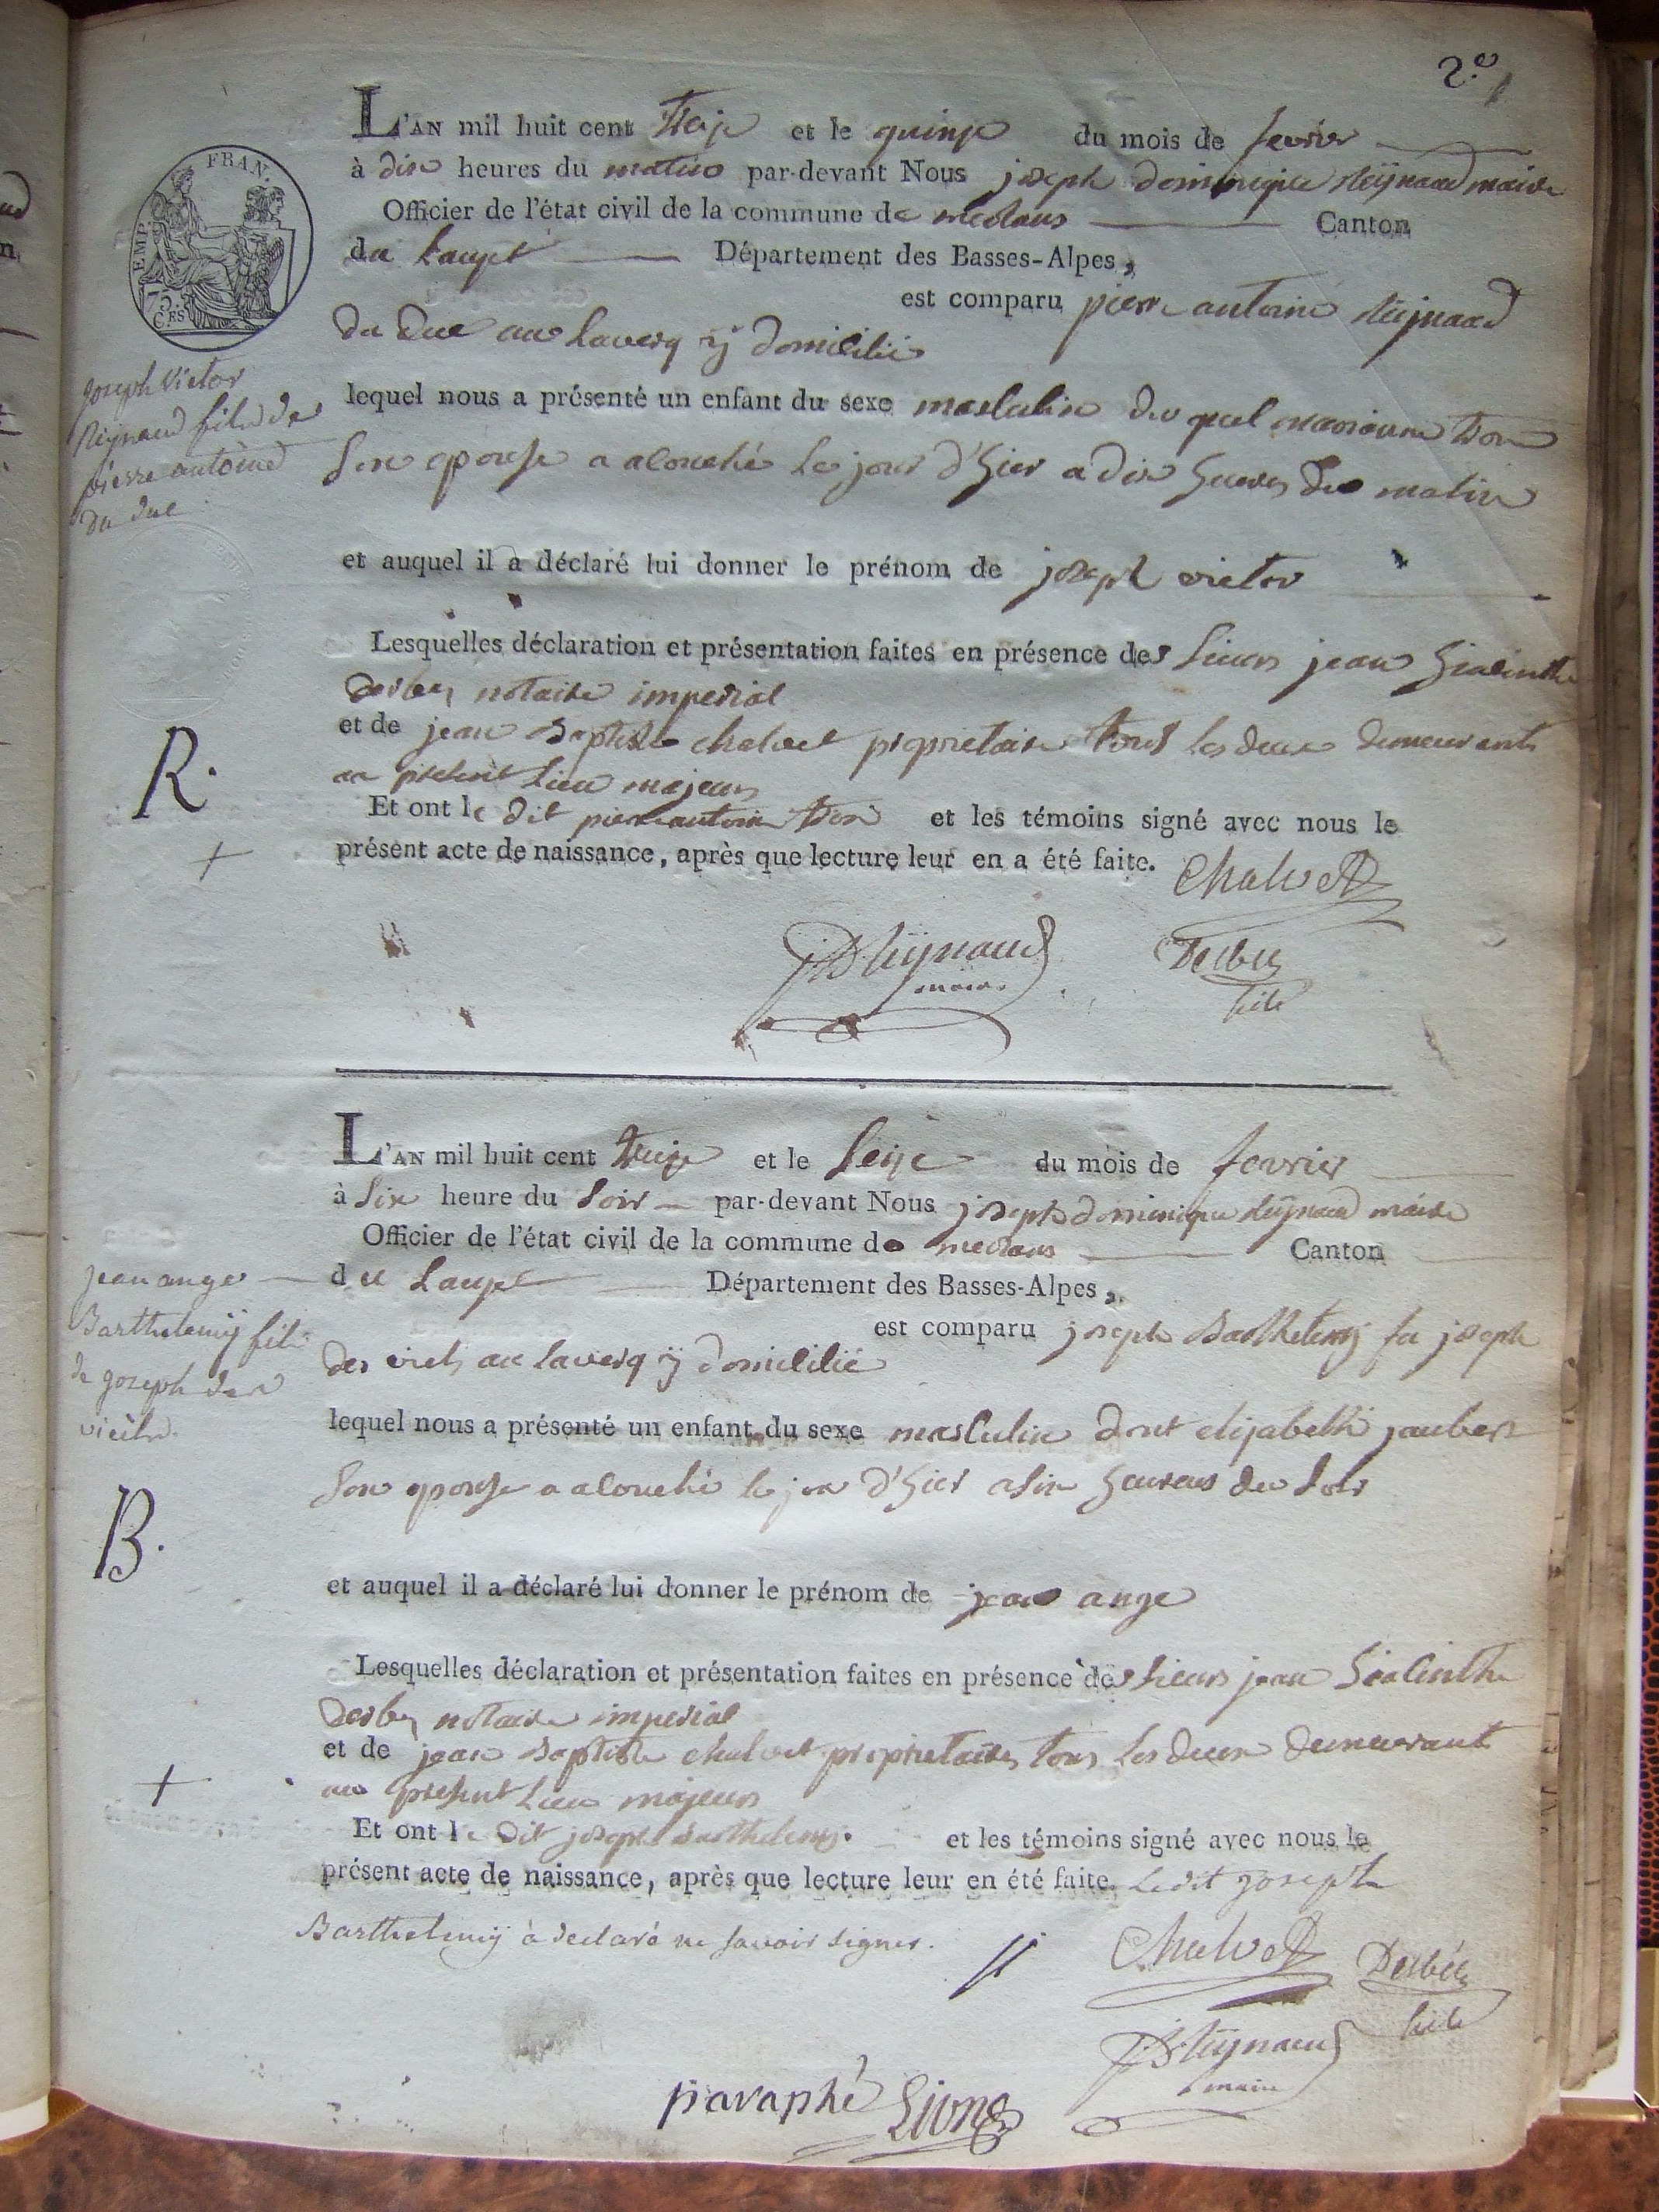 2.e
L'AN mil huit cent treize et le quinze du mois de fevrier
à dix heures du matin par-devant Nous joseph dominique Reÿnaud maire
Officier de l'état civil de la commune de meolans Canton
du Lauzet Département des Basses-Alpes,
est comparu pierre antoine Reÿnaud
du duc au Laverq ÿ domicilié
lequel nous a présenté un enfant du sexe masculin du quel marianne tron
Son epouse a acouché Le jour d'hier a dix heures du matin
et auquel il a déclaré lui donner le prénom de joseph victor
Lesquelles déclaration et présentation faites en présence des Sieurs jean hiacinthe
derbez notaire imperial
et de jean Baptiste chalvet proprietaire tous Les deux demeurants
au présent Lieu majeurs
Et ont le dit pierre antoine et les témoins signé avec nous le
présent acte de naissance, après que lecture leur en a été faite. Chalvet
JD Reÿnaud Derbez
maire
FRAN.
EMP.
75.
C.ES
Joseph Victor
Reÿnaud fils de
pierre antoine
du duc
R.
+
L'AN mil huit cent treize et le Seize du mois de fevrier
à Six heure du Soir par-devant Nous joseph dominique Reÿnaud maire
Officier de l'état civil de la commune de meolans Canton
du Lauzet Département des Basses-Alpes,
est comparu joseph Barthelemÿ fu joseph
des viels au Laverq ÿ domicilié
lequel nous a présenté un enfant du sexe masculin dont elizabeth jaubert
Son epouse a acouché le jour d'hier a Six heures du Soir
et auquel il a déclaré lui donner le prénom de jean ange
Lesquelles déclaration et présentation faites en présence des Sieurs jean hiacinthe
derbez notaire imperial
et de jean Baptiste chalvet proprietaires tous Les deux demeurant
au présent Lieu majeurs
Et ont le dit joseph Barthelemÿ. et les témoins signé avec nous le
présent acte de naissance, après que lecture leur en été faite. Ledit joseph
Barthelemÿ à declaré ne savoir signer.
Chalvet Derbez
JD Reÿnaud
maire
paraphé
jean ange
Barthelemÿ fils
de joseph des
viels
B.
+